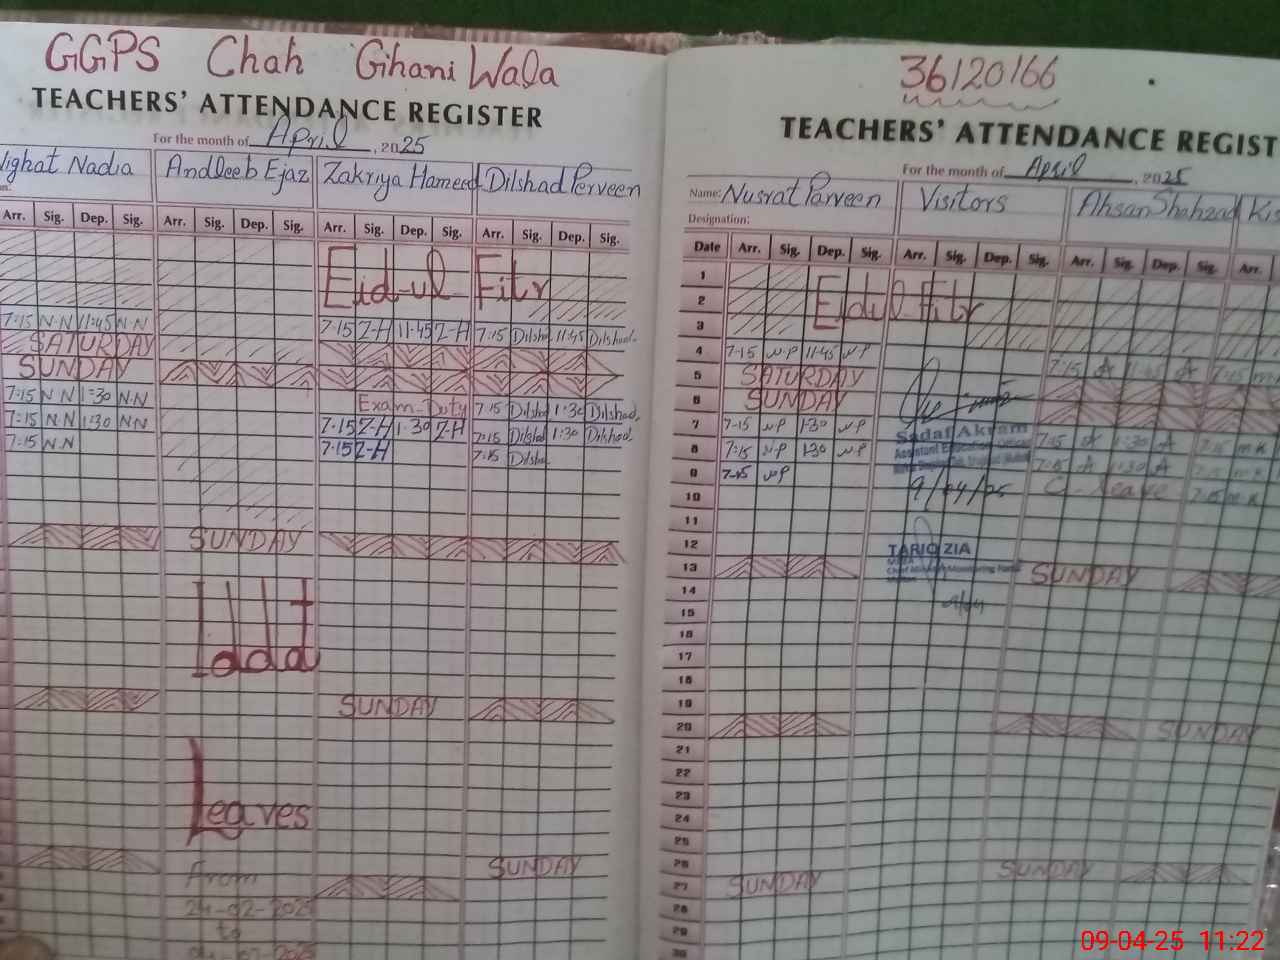 GGPS Chah Gihani Wala
TEACHERS' ATTENDANCE REGISTER
For the month of April, 2025
Nadia Andleeb Ejaz Zakriya Hameed Dilshad Perveen
Arr. Sig. Dep. Sig. Arr. Sig. Dep. Sig. Arr. Sig. Dep. Sig. Arr. Sig. Dep. Sig.
Eid-ul Fitr
7:15 N-N 11:45 N-N 7-15 Z-H 11-45 Z-H 7:15 11:45 Dilshad.
SATURDAY
SUNDAY
7:15 N N 1:30 N-N Exam-Duty 7:15 1:30 Dilshad,
7:15 N N 1:30 N N 7-15 Z-H 1-30 Z-H 7:15 1:30 Dilshad
7:15 N.N 7-15 Z-H 7:15
SUNDAY
Iddat
SUNDAY
Leaves
SUNDAY
From
to
36120166
TEACHERS' ATTENDANCE REGIST
For the month of April, 2025
Name: Nusrat Parveen Visitors Ahsan Shahzad
Designation:
Date Arr. Sig. Dep. Sig. Arr. Sig. Dep. Sig. Arr. Sig. Dep. Sig. Arr.
1
2 Eidul Fitr
3
4 7-15 N-P 11-45 N-P 7:15 A 11:45 A 7:15
5 SATURDAY
6 SUNDAY
7 7-15 N-P 1-30 N-P
Sadaf Akram
Assistant Education Officer
8 7:15 N-P 1-30 N-P 7:15 A 1:30 A
9 7-15 N-P 7:15 A 1:30 A
10 9/04/25 C-Leave
11
12
TARIQ ZIA
13 SUNDAY
14
15
16
17
18
19
20 SUNDAY
21
22
23
24
25
26 SUNDAY
27 SUNDAY
28
29
30
09-04-25 11:22